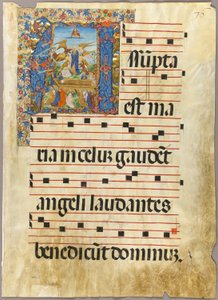 Assūpta
est ma
ria in celuz gaudēt
angeli laudantes
benedicūt dominuz.